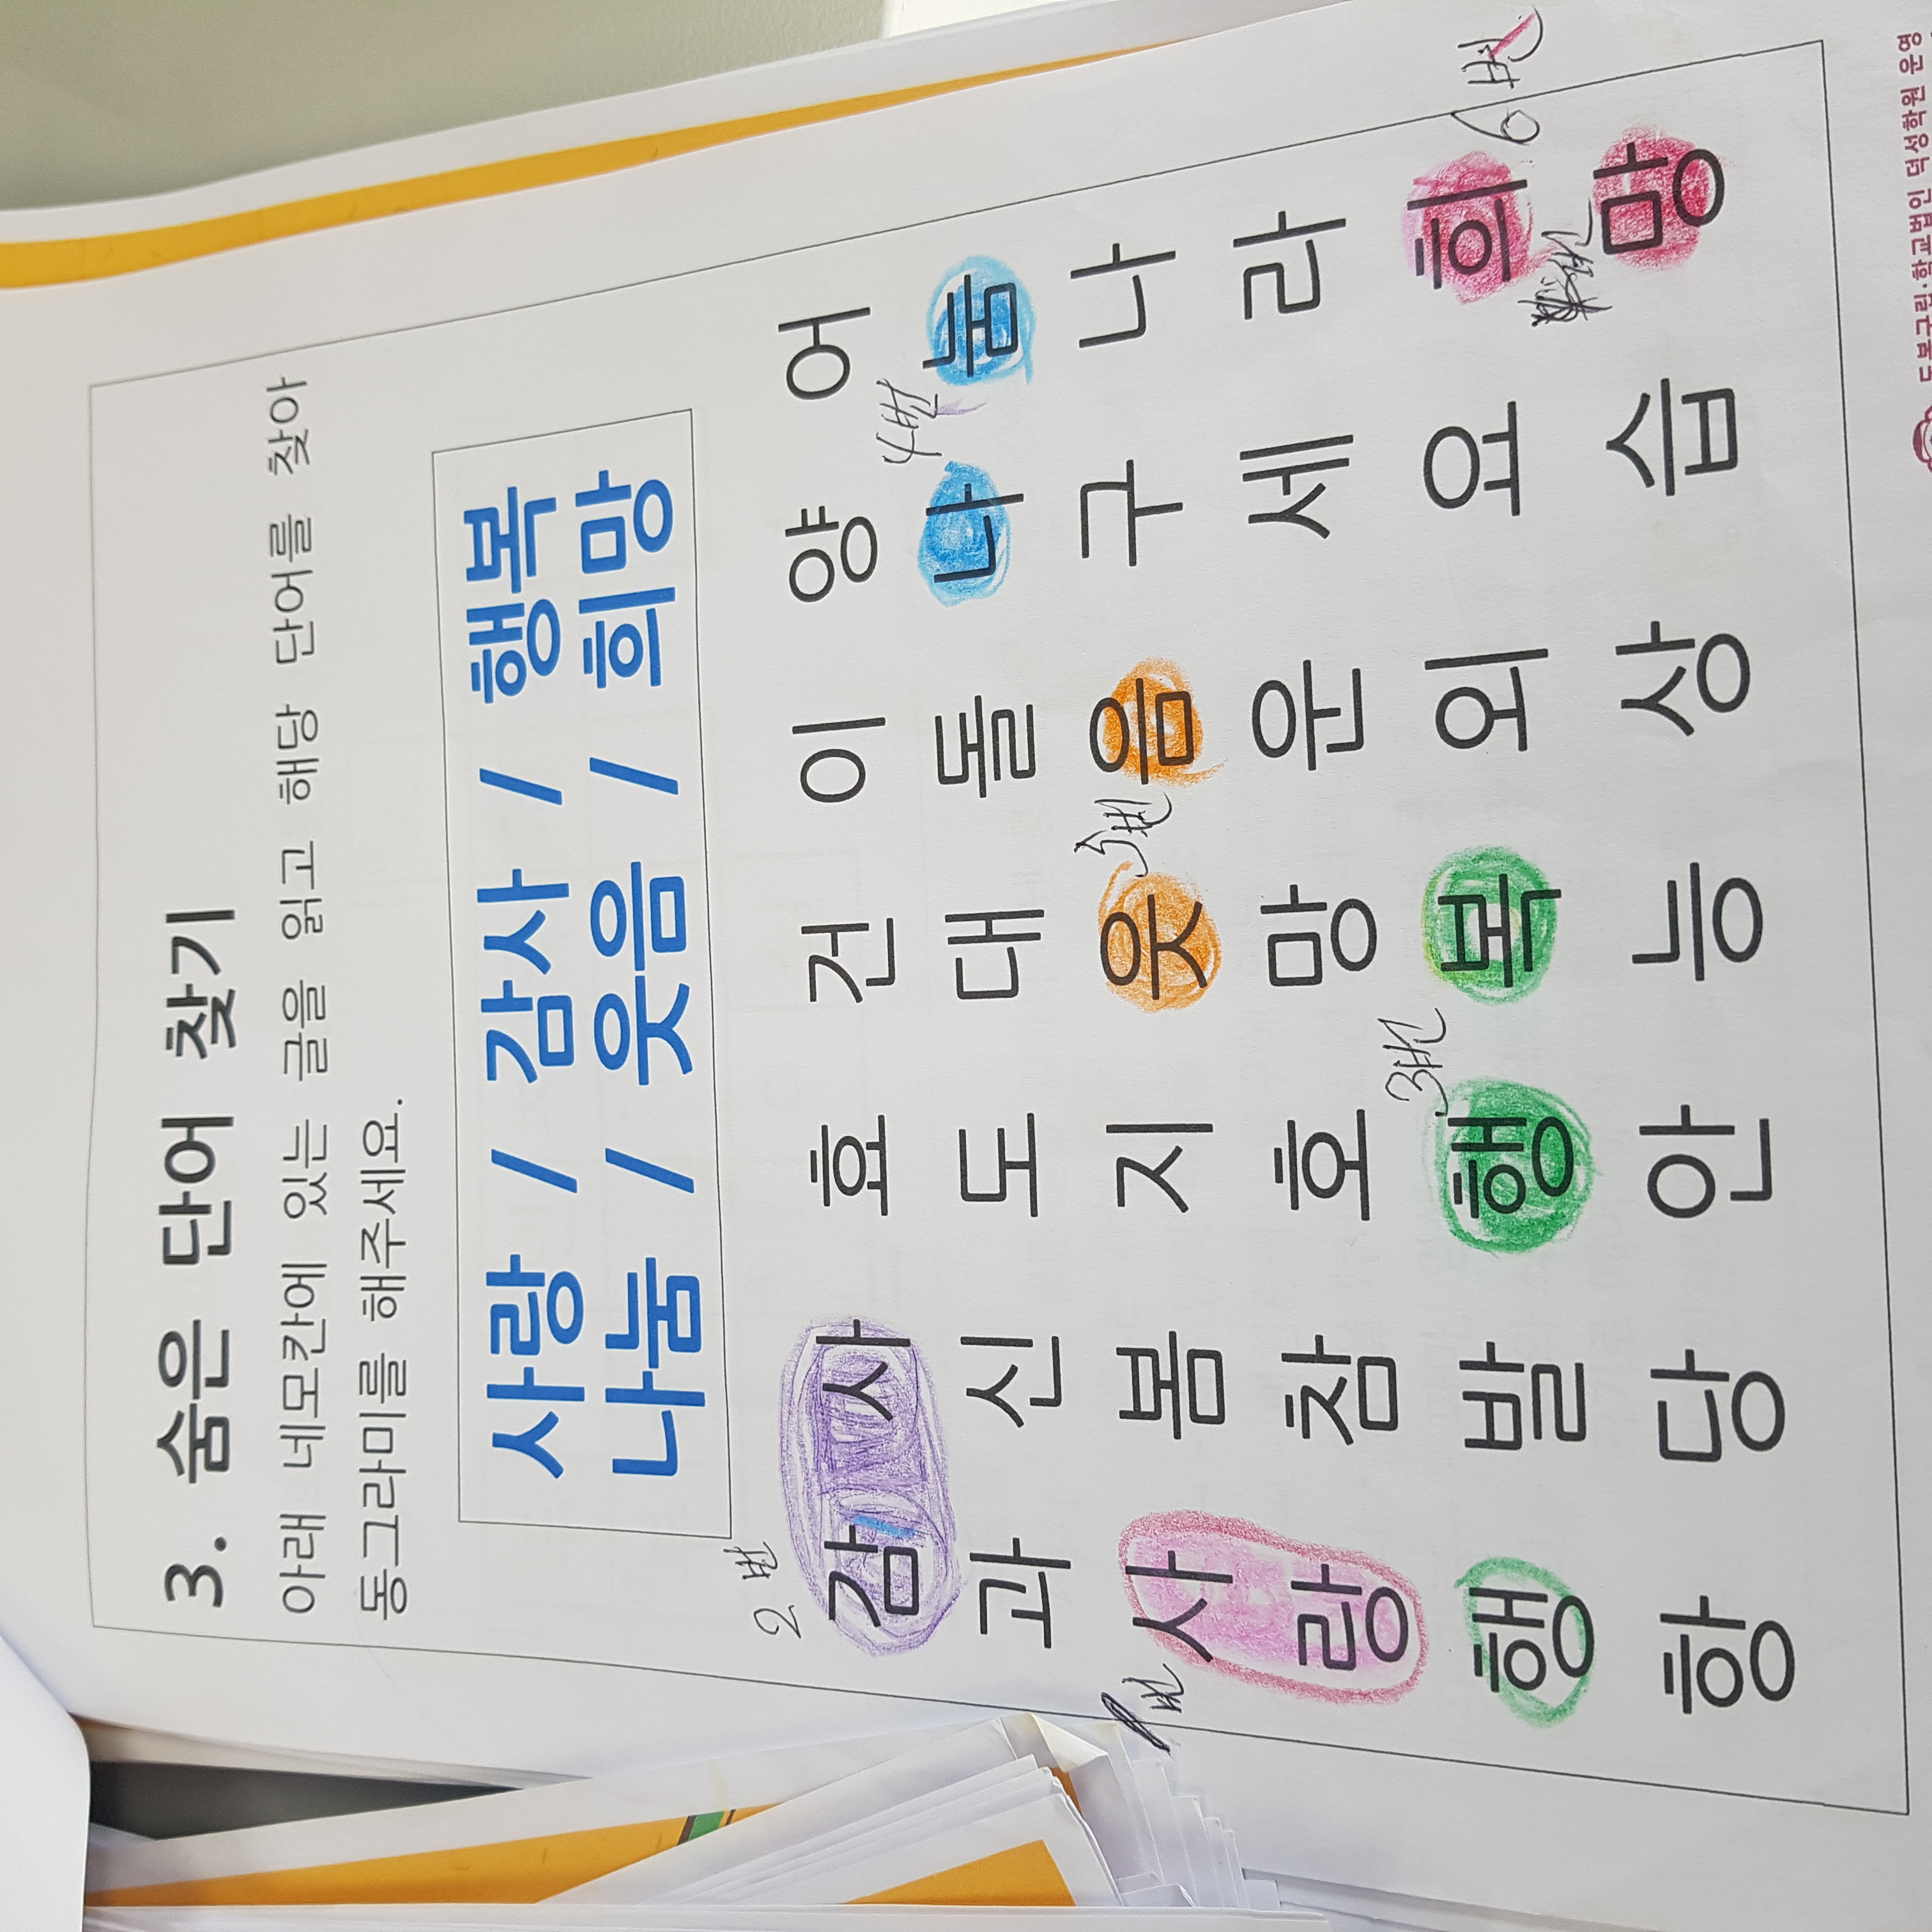 3. 숨은 단어 찾기
아래 네모칸에 있는 글을 읽고 해당 단어를 찾아
동그라미를 해주세요.
사랑 / 감사 / 행복
나눔 / 웃음 / 희망
2번
감 사 효 건 이 양 어
4번
과 신 도 대 돌 나 눔
1번 사 봄 지 웃 5번 음 구 나
랑 참 호 망 운 세 라
3번
행 발 행 복 외 요 희
6번
항 당 안 능 상 습 망
도봉구립·학교법인 덕성학원 운영